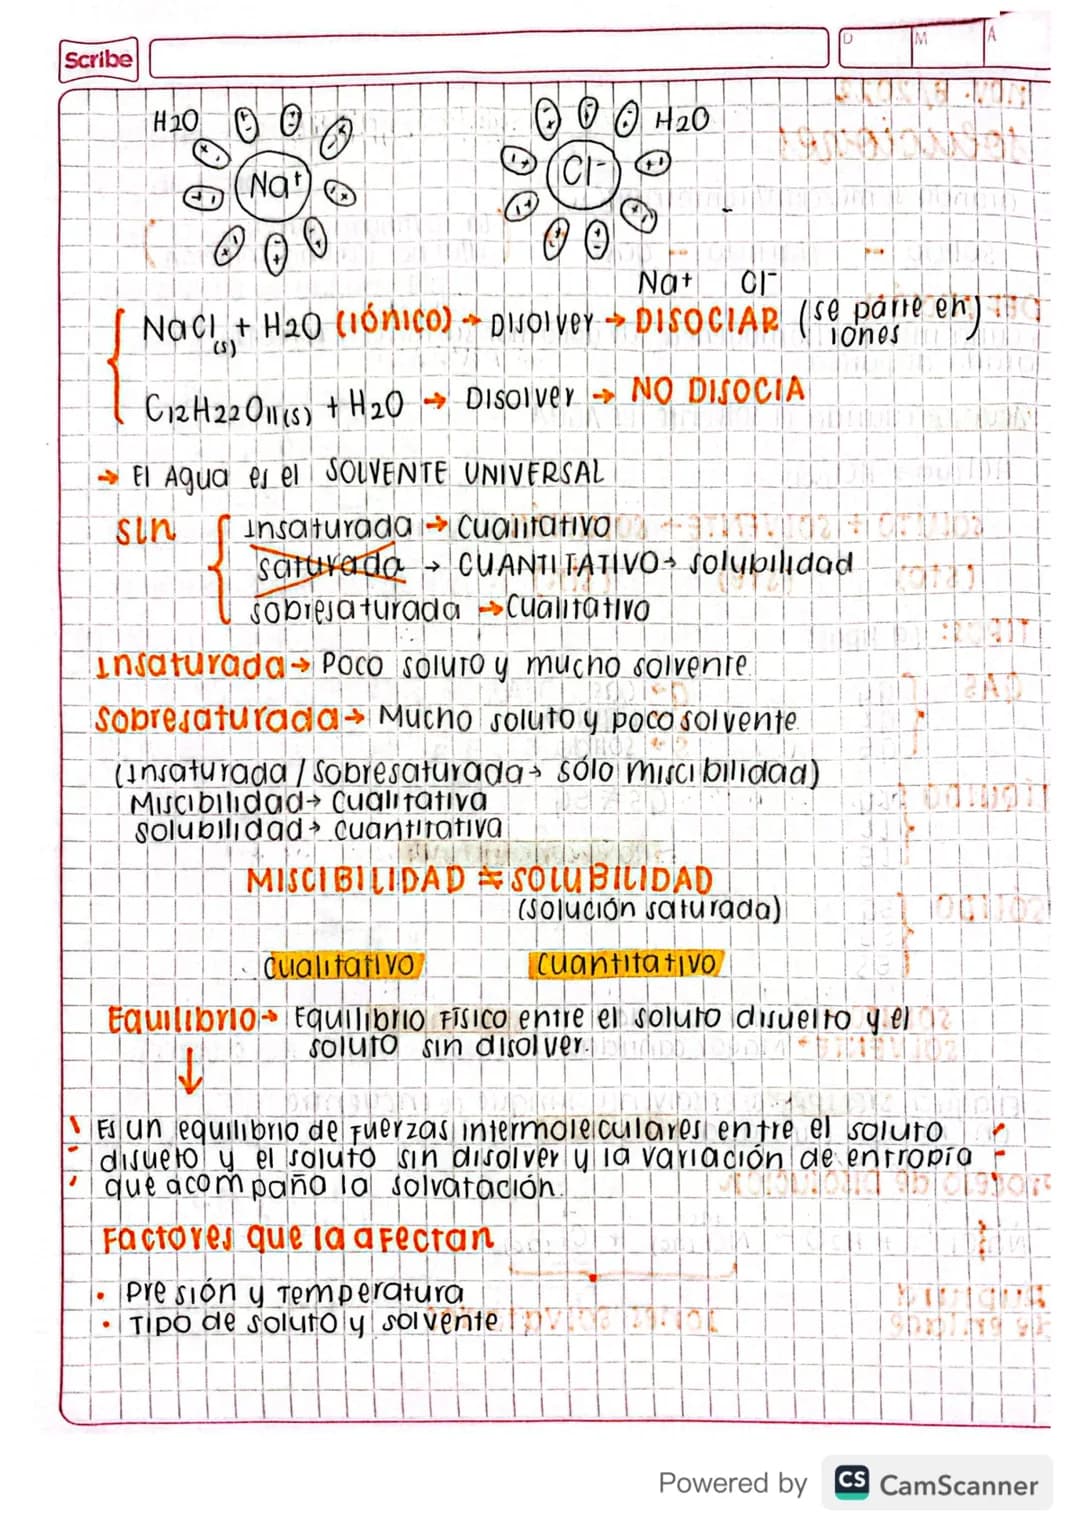 Scribe
D M A
H2O H2O
Na+ Cl-
Na+ Cl-
NaCl(s) + H2O (IÓNICO) → Disolver → DISOCIAR (se parte en iones)
C12H22O11(s) + H2O → Disolver → NO DISOCIA
→ El Agua es el SOLVENTE UNIVERSAL
sln
Insaturada → Cualitativo
saturada → CUANTITATIVO → solubilidad
sobresaturada → Cualitativo
Insaturada → Poco soluto y mucho solvente
Sobresaturada → Mucho soluto y poco solvente
(Insaturada / Sobresaturada → sólo miscibilidad)
Miscibilidad → Cualitativa
Solubilidad → cuantitativa
MISCIBILIDAD ≠ SOLUBILIDAD
(solución saturada)
cualitativo cuantitativo
Equilibrio → Equilibrio Físico entre el soluto disuelto y el
soluto sin disolver.
Es un equilibrio de Fuerzas intermoleculares entre el soluto
disueto y el soluto sin disolver y la variación de entropía
que acompaño la solvatación.
Factores que la afectan
• Presión y Temperatura
• Tipo de soluto y solvente
Powered by CS CamScanner